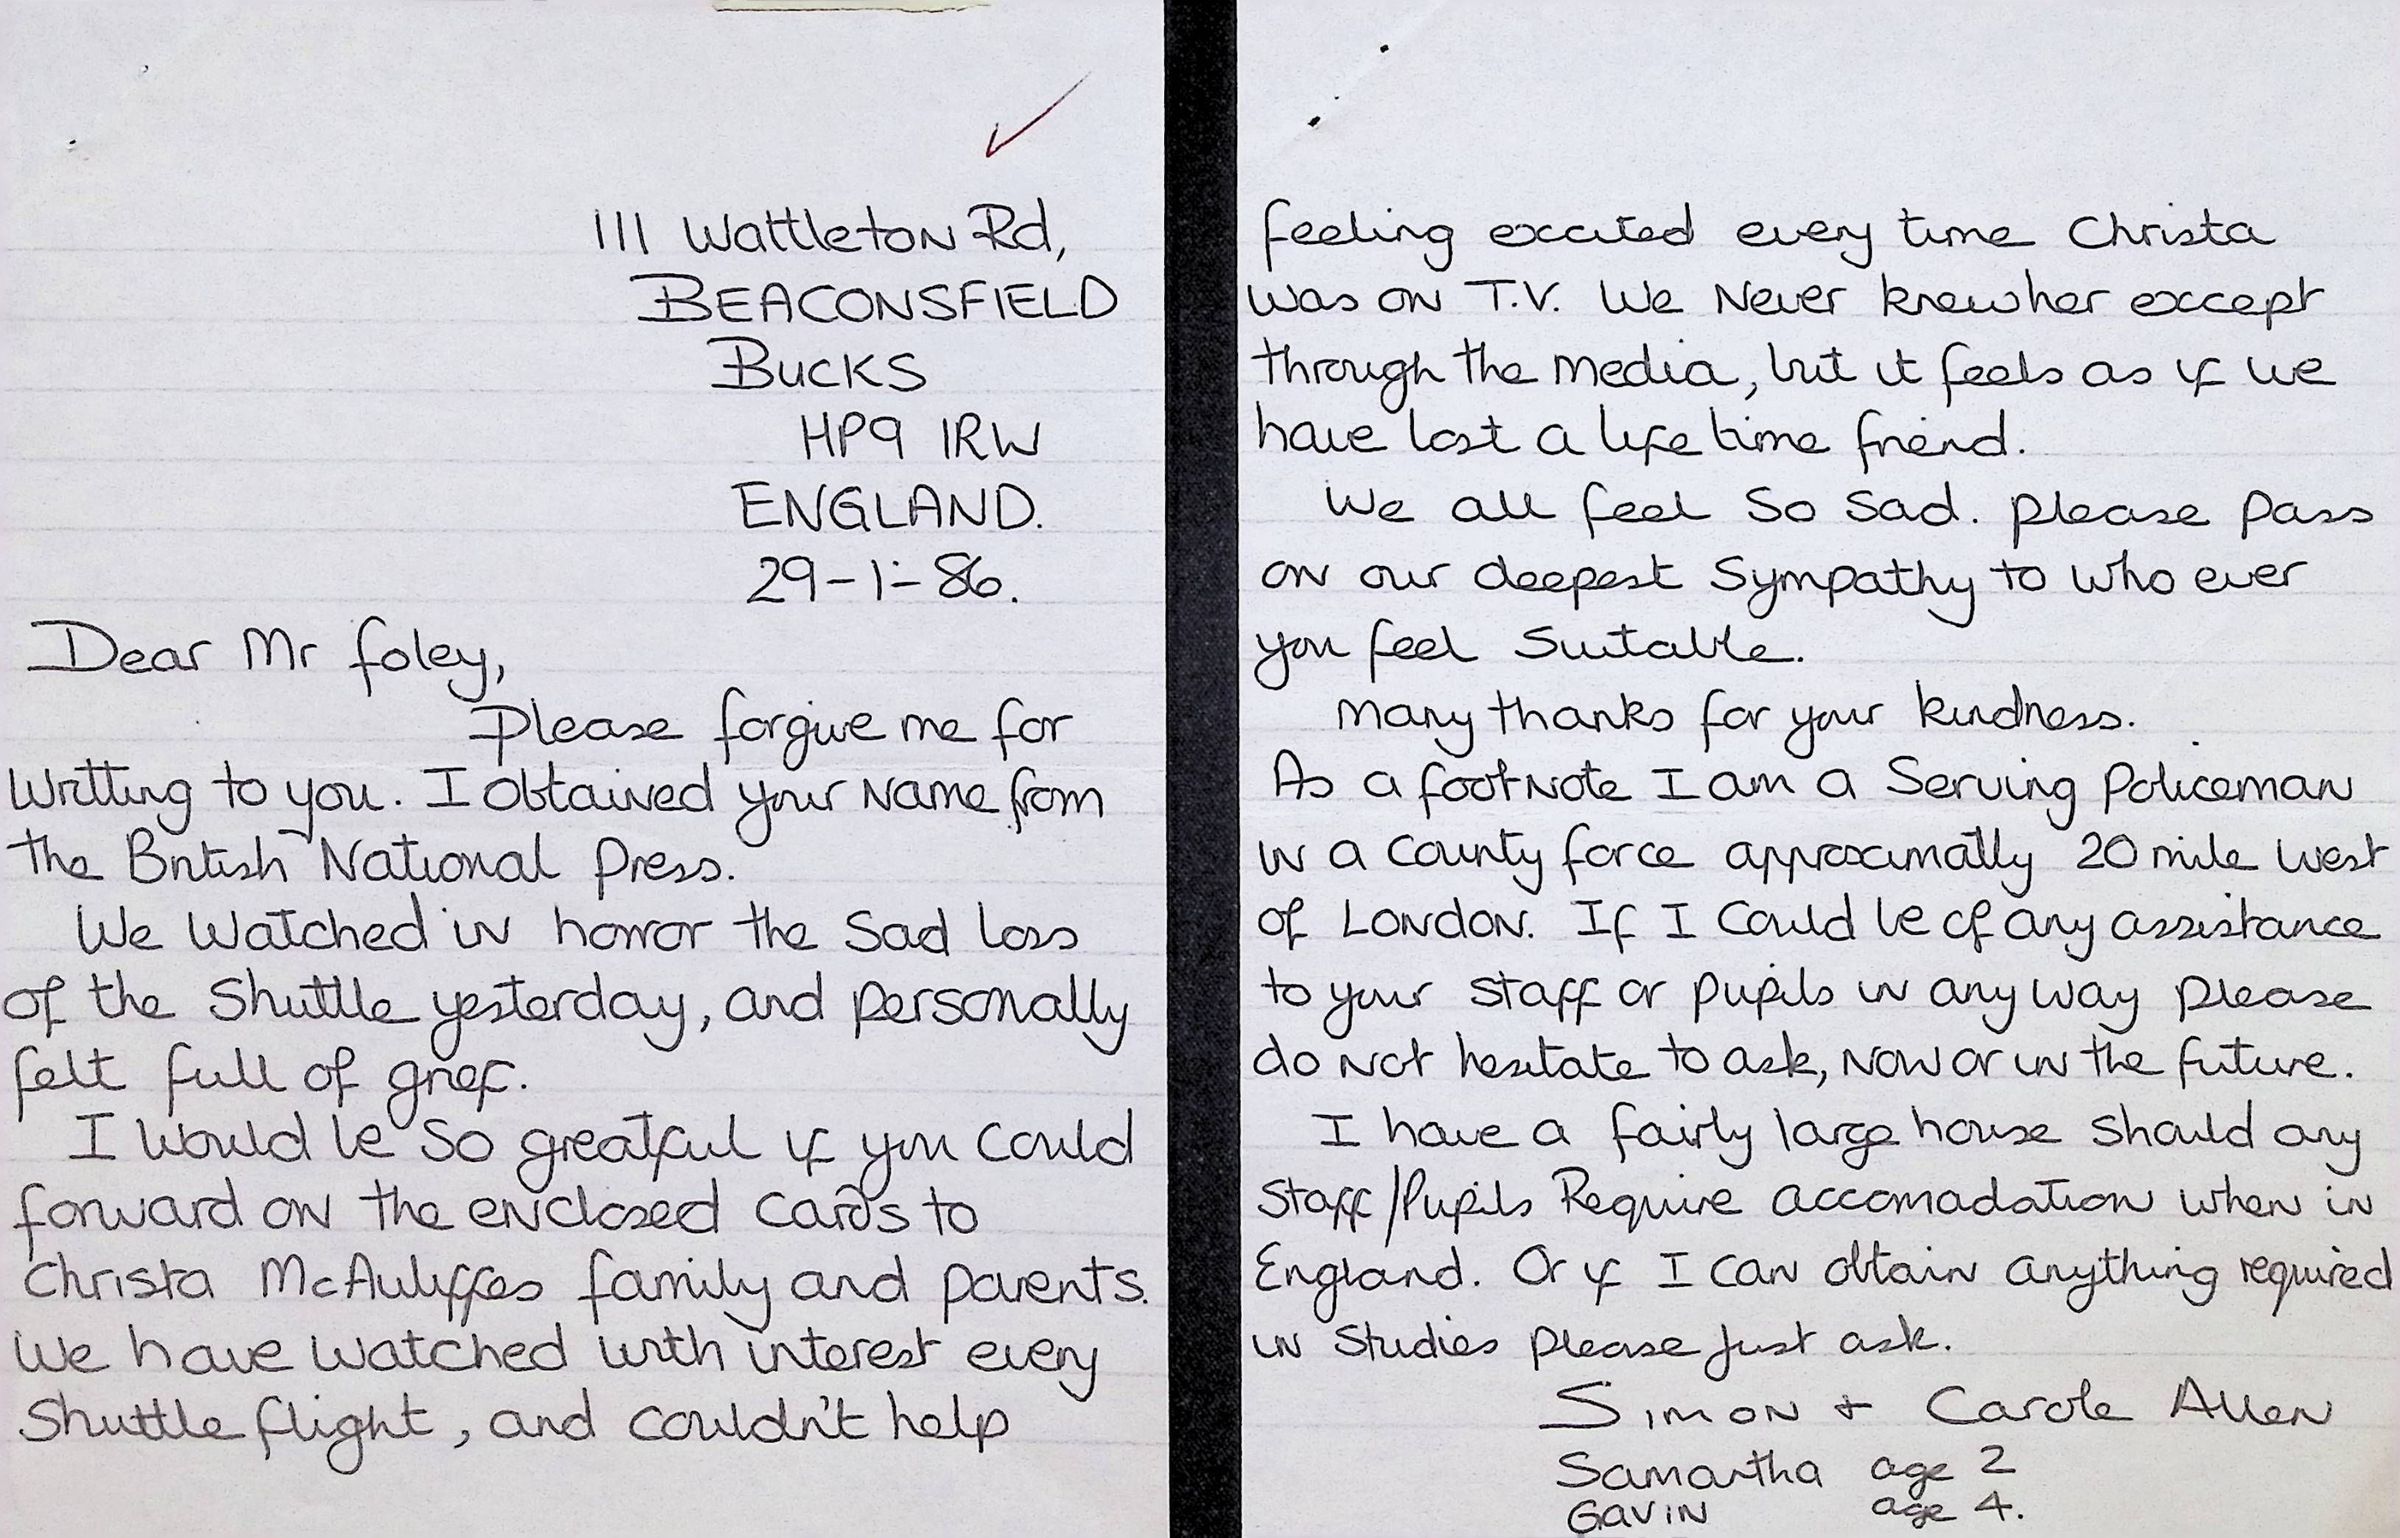 111 Wattleton Rd,
BEACONSFIELD
BUCKS
HP9 1RW
ENGLAND.
29-1-86.
Dear Mr Foley,
Please forgive me for
writting to you. I obtained your name from
the British National Press.
We watched in horror the sad loss
of the shuttle yesterday, and personally
felt full of grief.
I would be so greatful if you could
forward on the enclosed cards to
Christa McAuliffes family and parents.
We have watched with interest every
shuttle flight, and couldn't help
feeling excited every time Christa
was on T.V. We never knew her except
through the media, but it feels as if we
have lost a life time friend.
We all feel so sad. Please pass
on our deepest sympathy to who ever
you feel suitable.
Many thanks for your kindness.
As a footnote I am a serving Policeman
in a county force approximatly 20 mile west
of London. If I could be of any assistance
to your staff or pupils in any way please
do not hesitate to ask, now or in the future.
I have a fairly large house should any
staff/Pupils Require accomadation when in
England. Or if I can obtain anything required
in studies please just ask.
Simon + Carole Allen
Samantha age 2
GAVIN age 4.